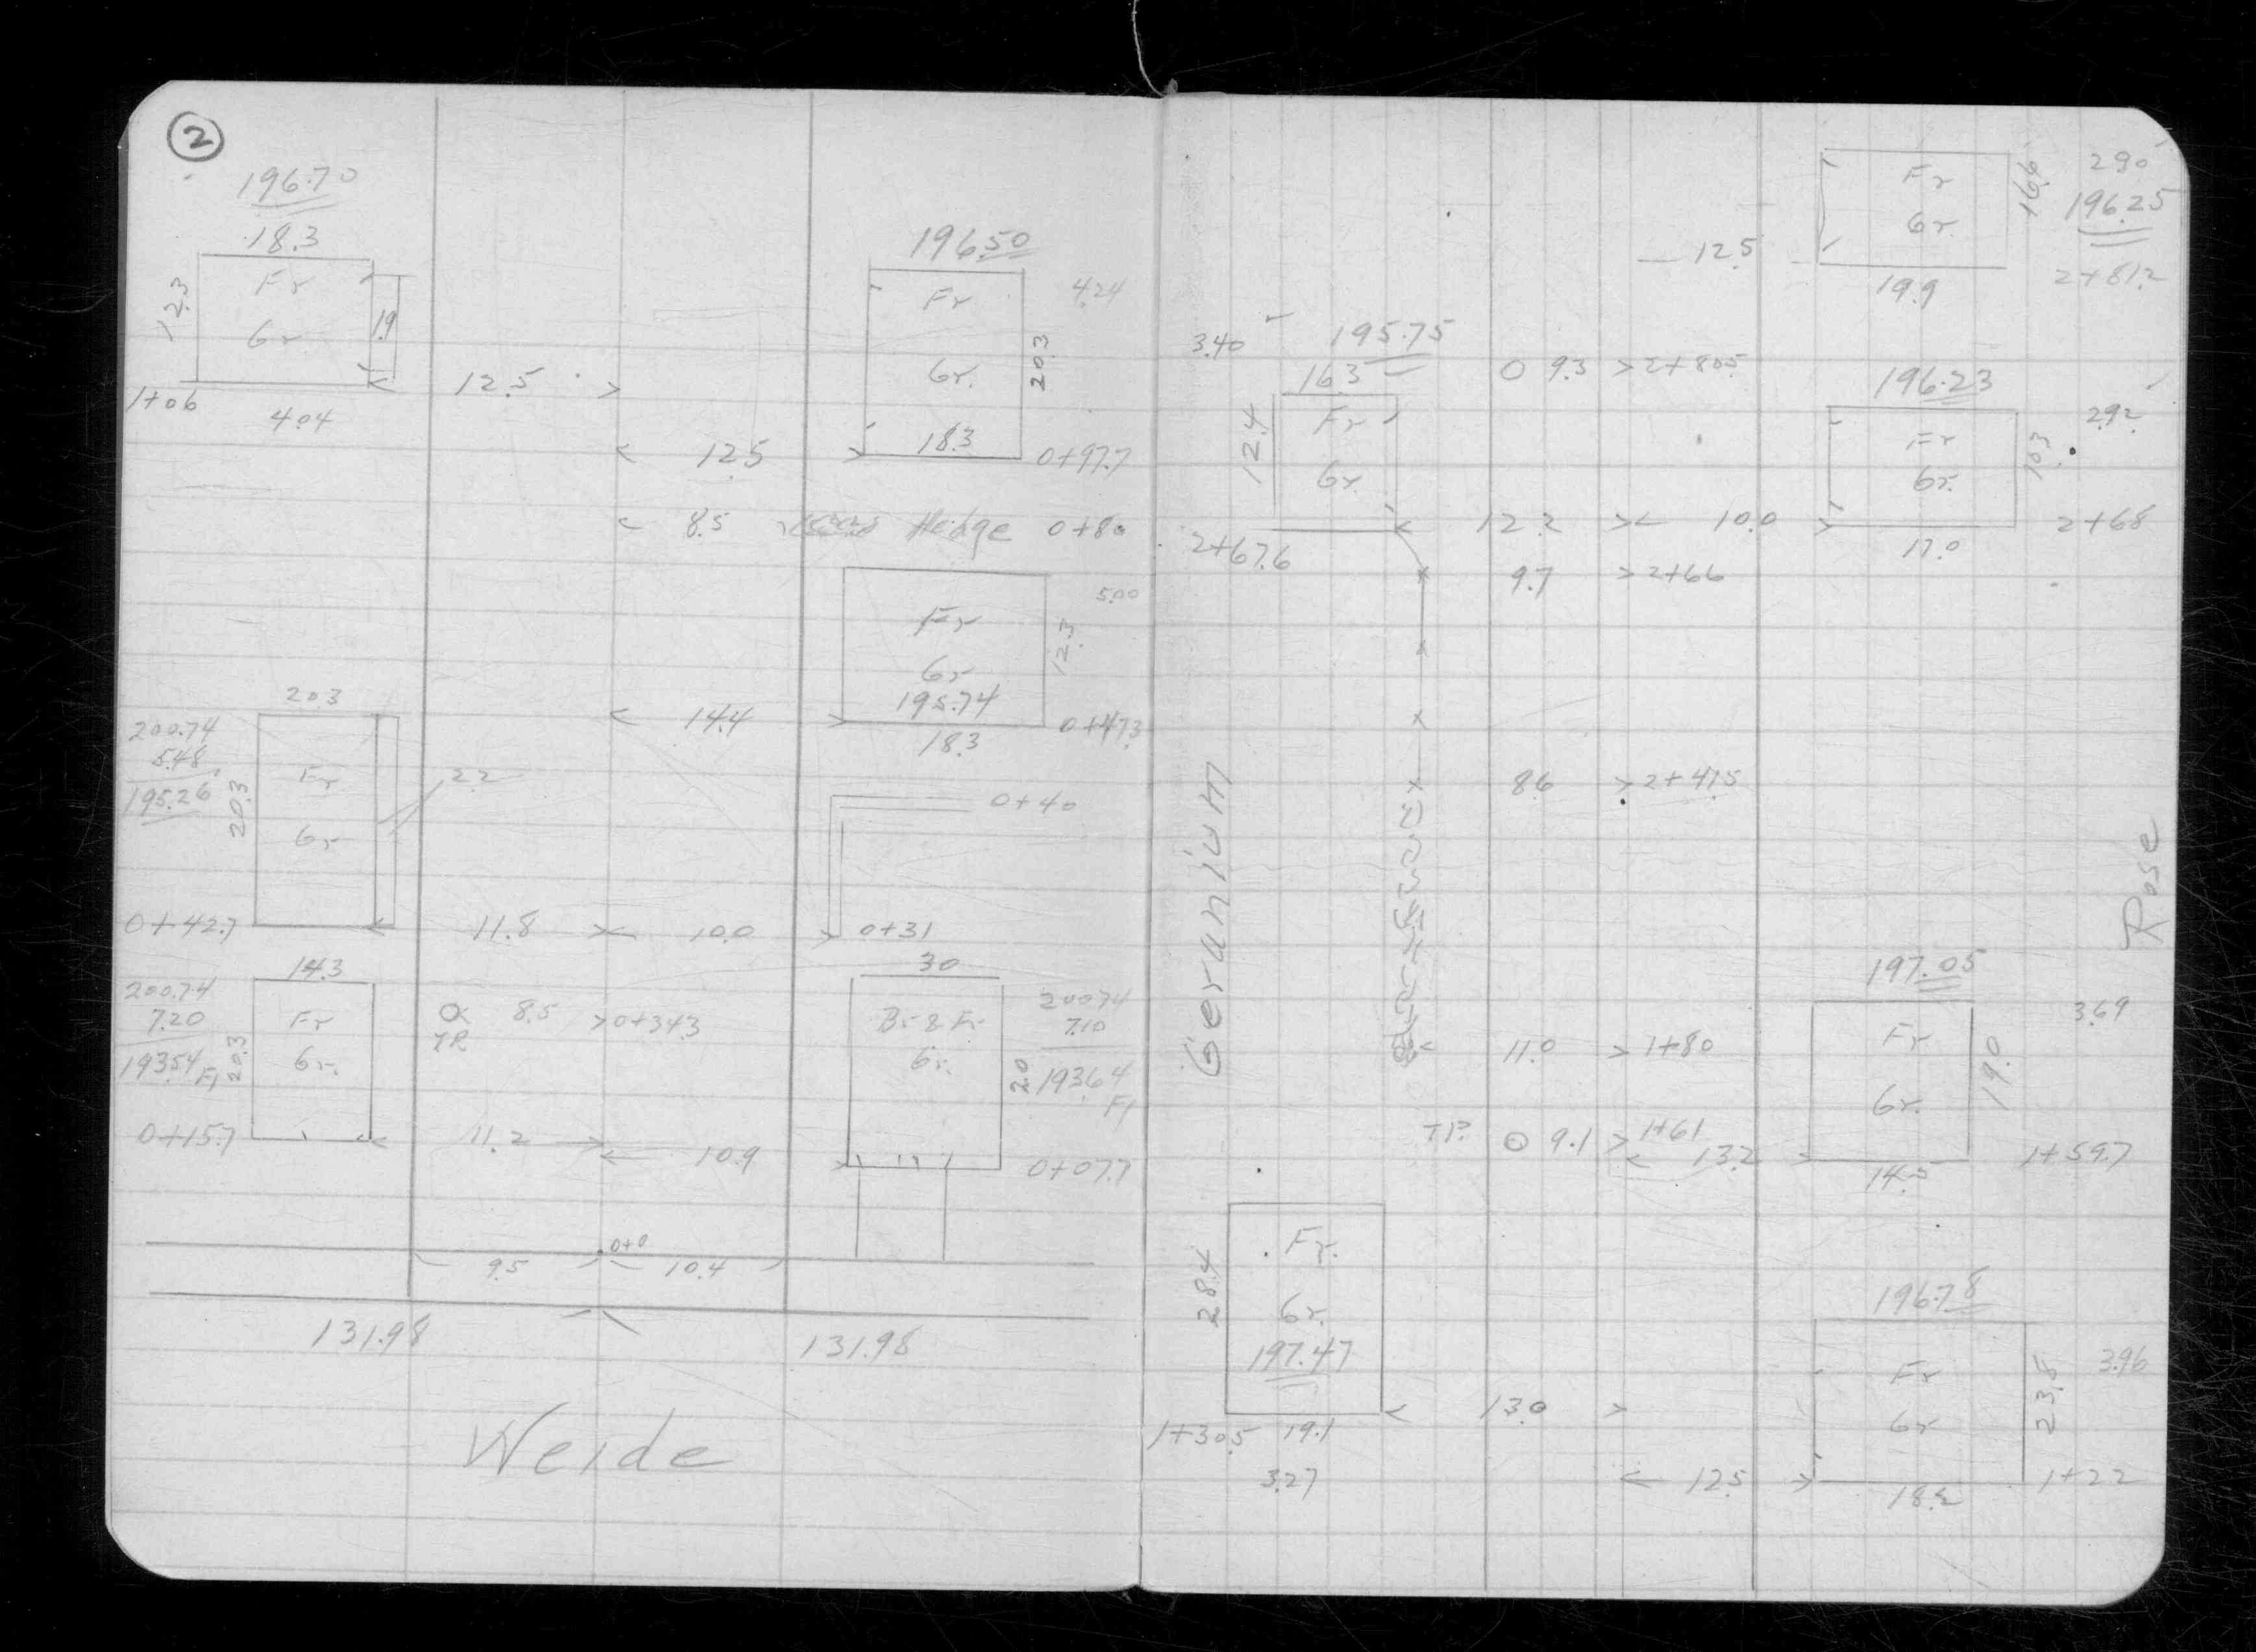 2
196.70
18.3
Fr
Gr
12.3
19
1+06
404
12.5
196.50
Fr
Gr.
18.3
20.3
4.24
12.5
0+97.7
8.5
Hedge 0+80
Fr
Gr
195.74
18.3
12.3
5.00
14.4
0+47.3
203
200.74
5.48
195.26
20.3
Fr
Gr
22
0+40
0+42.7
11.8
10.0
0+31
14.3
200.74
7.20
193.54 Fl
20.3
Fr
Gr.
TP.
8.5
0+34.3
30
Br & Fr
Gr.
20
200.74
7.10
193.64
Fl
0+15.7
11.2
10.9
0+07.7
0+0
9.5
10.4
131.98
131.98
Weide
Fr
Gr.
16.6
290
196.25
12.5
19.9
2+81.2
3.40
195.75
16.3
Fr
Gr.
12.4
9.3
2+80.5
196.23
Fr
Gr.
10.3
2.92
2+67.6
12.2
10.0
17.0
2+68
9.7
2+66
8.6
2+41.5
Geranium
Rose
197.05
Fr
Gr.
19.0
3.69
11.0
1+80
T.P.
9.1
1+61
13.2
14.5
1+59.7
Fr.
Gr.
197.47
28.4
196.78
Fr
Gr
23.8
3.96
13.0
1+30.5
19.1
3.27
12.5
18.2
1+22